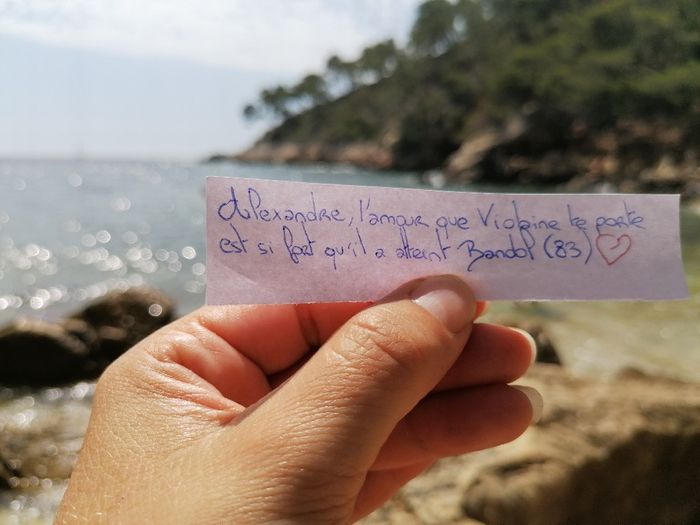 Alexandre, l'amour que Violaine te porte
est si fort qu'il a atteint Bandol (83)